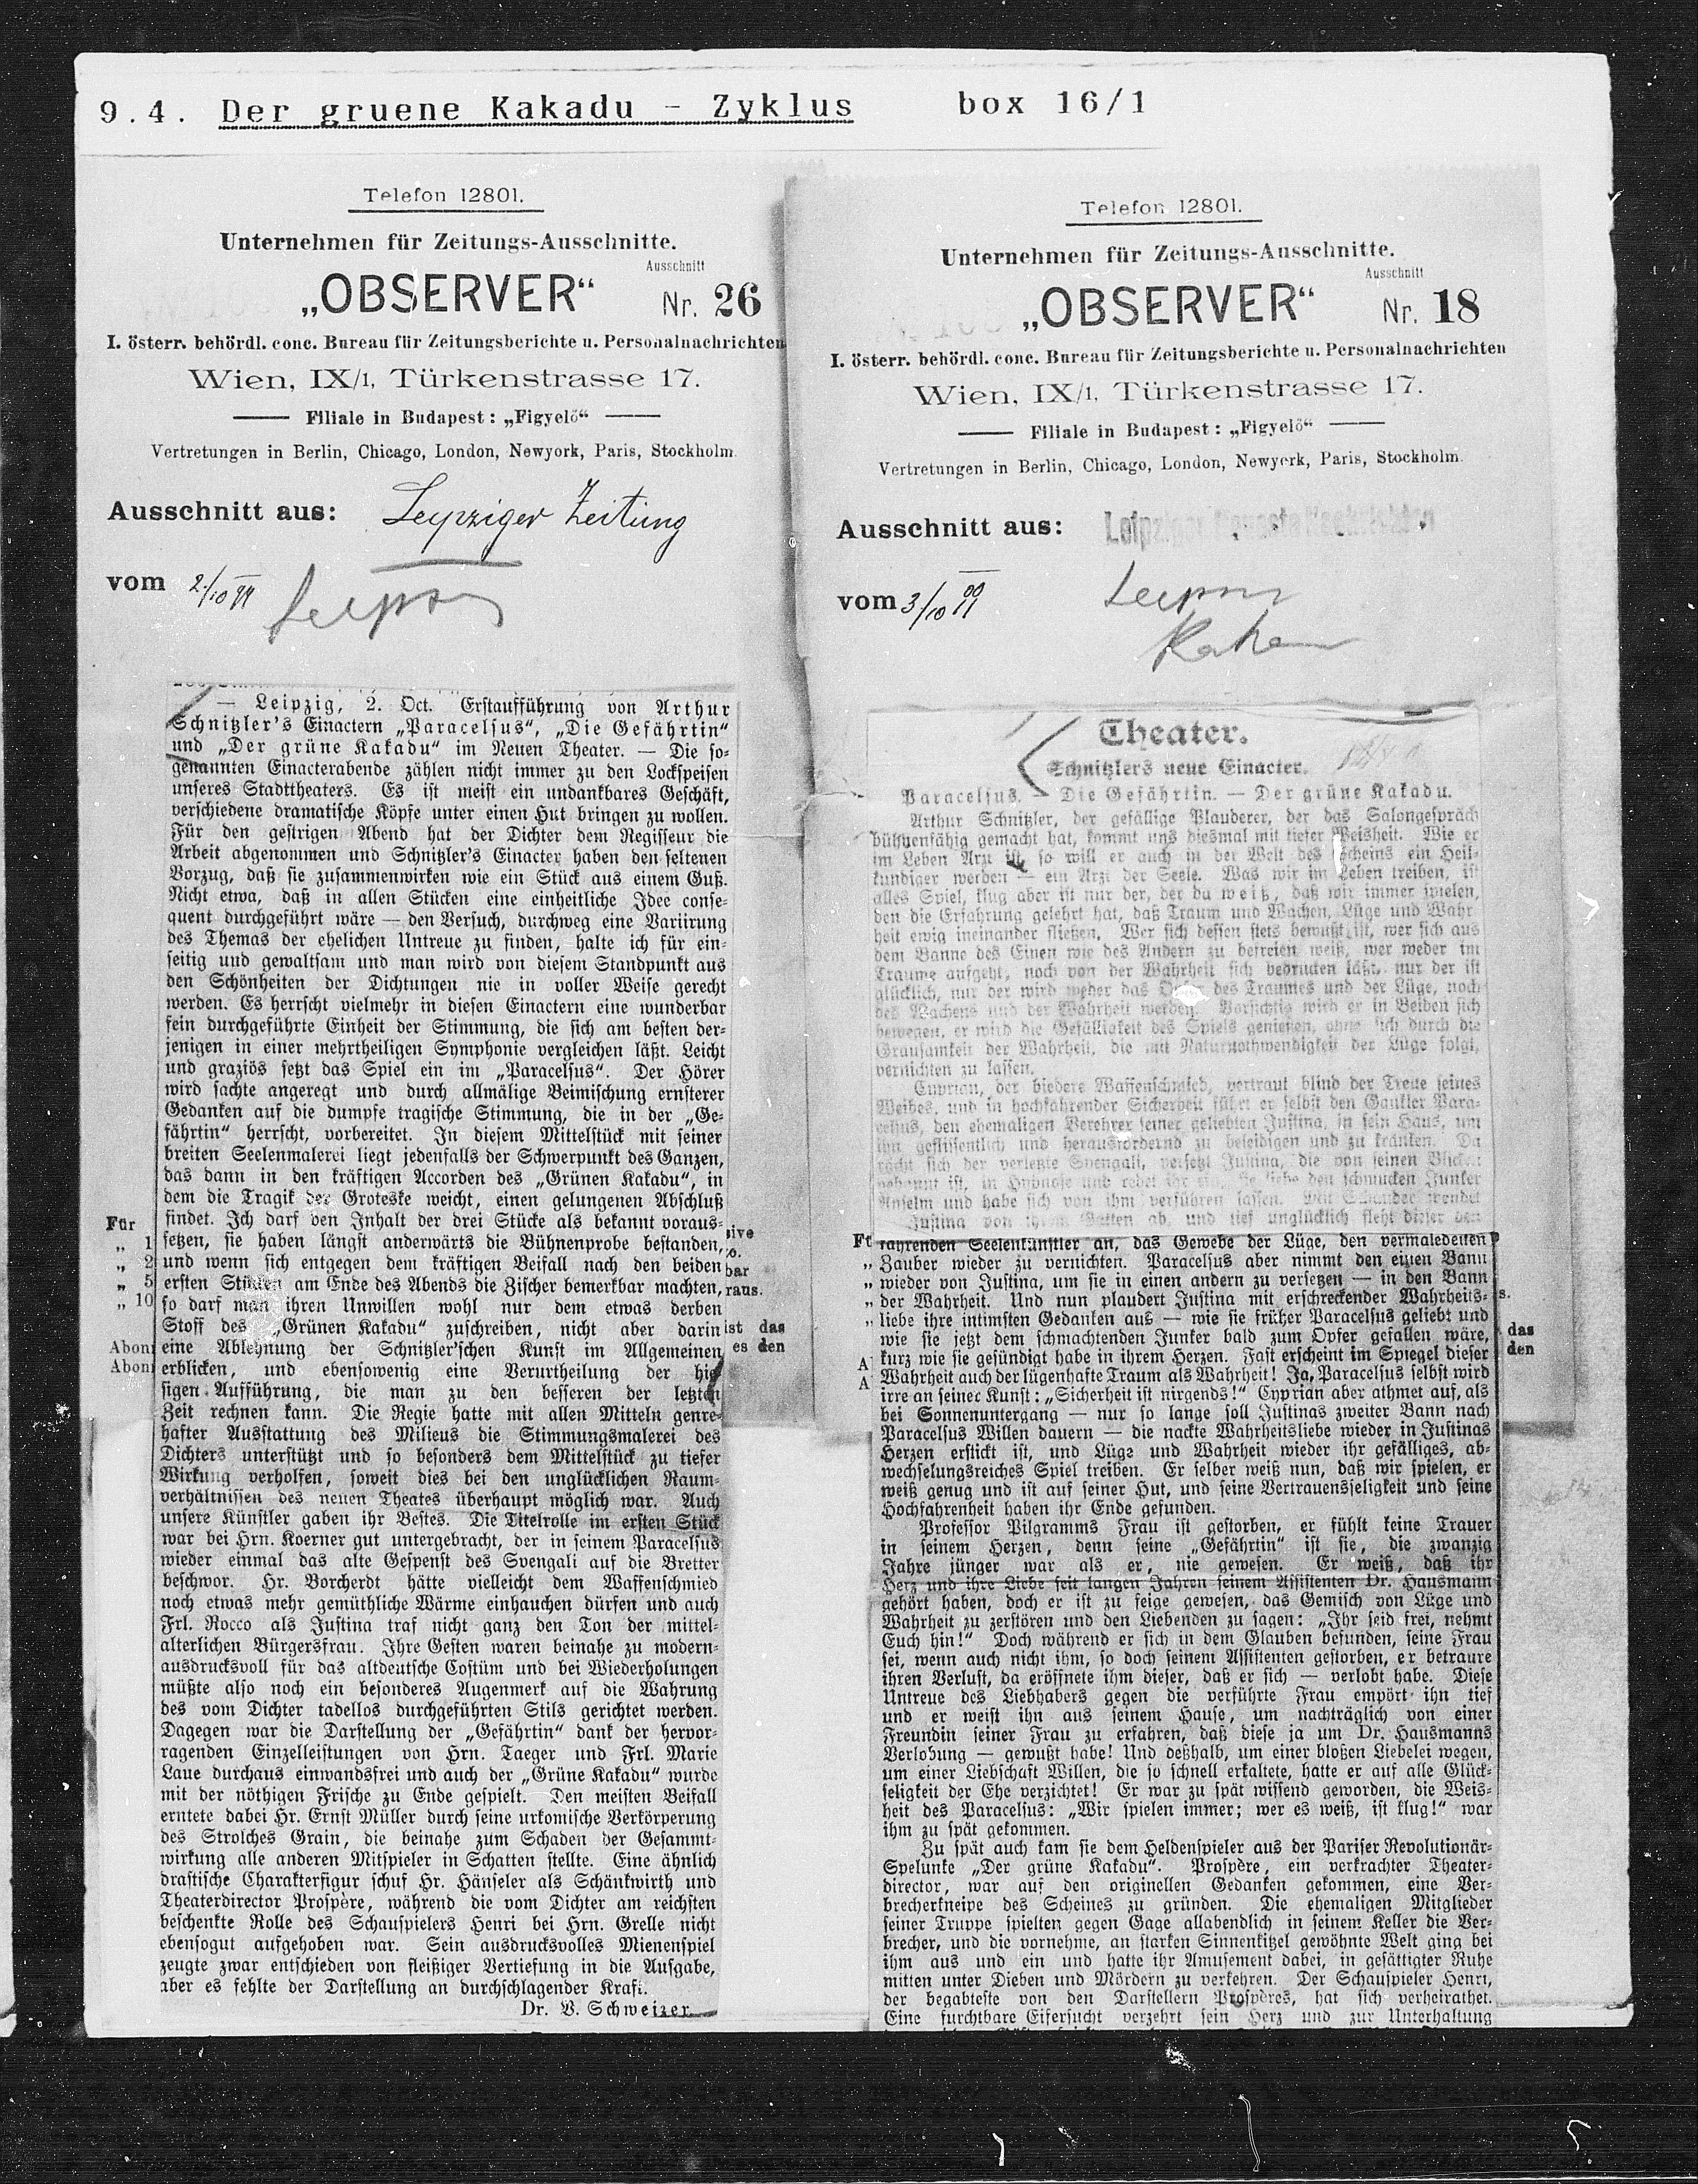 9.4. Der gruene Kakadu - Zyklus box 16/1
Telefon 12801.
Unternehmen für Zeitungs-Ausschnitte.
Ausschnitt
„OBSERVER“ Nr. 26
I. österr. behördl. conc. Bureau für Zeitungsberichte u. Personalnachrichten
Wien, IX/1, Türkenstrasse 17.
Filiale in Budapest: „Figyelő“
Vertretungen in Berlin, Chicago, London, Newyork, Paris, Stockholm.
Ausschnitt aus: Leipziger Zeitung
vom 2/10 99 Leipzig
— Leipzig, 2. Oct. Erstaufführung von Arthur
Schnitzler's Einactern „Paracelsus“, „Die Gefährtin“
und „Der grüne Kakadu“ im Neuen Theater. — Die so-
genannten Einacterabende zählen nicht immer zu den Lockspeisen
unseres Stadttheaters. Es ist meist ein undankbares Geschäft,
verschiedene dramatische Köpfe unter einen Hut bringen zu wollen.
Für den gestrigen Abend hat der Dichter dem Regisseur die
Arbeit abgenommen und Schnitzler's Einacter haben den seltenen
Vorzug, daß sie zusammenwirken wie ein Stück aus einem Guß.
Nicht etwa, daß in allen Stücken eine einheitliche Idee conse-
quent durchgeführt wäre — den Versuch, durchweg eine Variirung
des Themas der ehelichen Untreue zu finden, halte ich für ein-
seitig und gewaltsam und man wird von diesem Standpunkt aus
den Schönheiten der Dichtungen nie in voller Weise gerecht
werden. Es herrscht vielmehr in diesen Einactern eine wunderbar
fein durchgeführte Einheit der Stimmung, die sich am besten der-
jenigen in einer mehrtheiligen Symphonie vergleichen läßt. Leicht
und graziös setzt das Spiel ein im „Paracelsus“. Der Hörer
wird sachte angeregt und durch allmälige Beimischung ernsterer
Gedanken auf die dumpfe tragische Stimmung, die in der „Ge-
fährtin“ herrscht, vorbereitet. In diesem Mittelstück mit seiner
breiten Seelenmalerei liegt jedenfalls der Schwerpunkt des Ganzen,
das dann in den kräftigen Accorden des „Grünen Kakadu“, in
dem die Tragik der Groteske weicht, einen gelungenen Abschluß
findet. Ich darf den Inhalt der drei Stücke als bekannt voraus-
setzen, sie haben längst anderwärts die Bühnenprobe bestanden,
und wenn sich entgegen dem kräftigen Beifall nach den beiden
ersten Stücken am Ende des Abends die Zischer bemerkbar machten,
so darf man ihren Unwillen wohl nur dem etwas derben
Stoff des „Grünen Kakadu“ zuschreiben, nicht aber darin
eine Ablehnung der Schnitzler'schen Kunst im Allgemeinen
erblicken, und ebensowenig eine Verurtheilung der hie-
sigen Aufführung, die man zu den besseren der letzten
Zeit rechnen kann. Die Regie hatte mit allen Mitteln genre-
hafter Ausstattung des Milieus die Stimmungsmalerei des
Dichters unterstützt und so besonders dem Mittelstück zu tiefer
Wirkung verholfen, soweit dies bei den unglücklichen Raum-
verhältnissen des neuen Theates überhaupt möglich war. Auch
unsere Künstler gaben ihr Bestes. Die Titelrolle im ersten Stück
war bei Hrn. Koerner gut untergebracht, der in seinem Paracelsus
wieder einmal das alte Gespenst des Svengali auf die Bretter
beschwor. Hr. Borcherdt hätte vielleicht dem Waffenschmied
noch etwas mehr gemüthliche Wärme einhauchen dürfen und auch
Frl. Rocco als Justina traf nicht ganz den Ton der mittel-
alterlichen Bürgersfrau. Ihre Gesten waren beinahe zu modern-
ausdrucksvoll für das altdeutsche Costüm und bei Wiederholungen
müßte also noch ein besonderes Augenmerk auf die Wahrung
des vom Dichter tadellos durchgeführten Stils gerichtet werden.
Dagegen war die Darstellung der „Gefährtin“ dank der hervor-
ragenden Einzelleistungen von Hrn. Taeger und Frl. Marie
Laue durchaus einwandsfrei und auch der „Grüne Kakadu“ wurde
mit der nöthigen Frische zu Ende gespielt. Den meisten Beifall
erntete dabei Hr. Ernst Müller durch seine urkomische Verkörperung
des Strolches Grain, die beinahe zum Schaden der Gesammt-
wirkung alle anderen Mitspieler in Schatten stellte. Eine ähnlich
drastische Charakterfigur schuf Hr. Hänseler als Schänkwirth und
Theaterdirector Prospère, während die vom Dichter am reichsten
beschenkte Rolle des Schauspielers Henri bei Hrn. Grelle nicht
ebensogut aufgehoben war. Sein ausdrucksvolles Mienenspiel
zeugte zwar entschieden von fleißiger Vertiefung in die Aufgabe,
aber es fehlte der Darstellung an durchschlagender Kraft.
Dr. V. Schweizer.
Für
„ 1
„ 2
„ 5
„ 10
Abon
Abon
sive
o.
bar
raus.
ist das
es den
Telefon 12801.
Unternehmen für Zeitungs-Ausschnitte.
Ausschnitt
„OBSERVER“ Nr. 18
I. österr. behördl. conc. Bureau für Zeitungsberichte u. Personalnachrichten
Wien, IX/1, Türkenstrasse 17.
Filiale in Budapest: „Figyelő“
Vertretungen in Berlin, Chicago, London, Newyork, Paris, Stockholm.
Ausschnitt aus: Leipziger Neueste Nachrichten
vom 3/10 99 Leipzig
Theater.
Schnitzlers neue Einacter.
Paracelsus. — Die Gefährtin. — Der grüne Kakadu.
Arthur Schnitzler, der gefällige Plauderer, der das Salongespräch
bühnenfähig gemacht hat, kommt uns diesmal mit tiefer Weisheit. Wie er
im Leben Arzt ist, so will er auch in der Welt des Scheins ein Heil-
kundiger werden — ein Arzt der Seele. Was wir im Leben treiben, ist
alles Spiel, klug aber ist nur der, der da weiß, daß wir immer spielen,
den die Erfahrung gelehrt hat, daß Traum und Wachen, Lüge und Wahr-
heit ewig ineinander fließen. Wer sich dessen stets bewußt ist, wer sich aus
dem Banne des Einen wie des Andern zu befreien weiß, wer weder im
Traume aufgeht, noch von der Wahrheit sich bedrücken läßt, nur der ist
glücklich, nur der wird weder das Opfer des Traumes und der Lüge, noch
des Wachens und der Wahrheit werden. Vorsichtig wird er in Beiden sich
bewegen, er wird die Gefälligkeit des Spiels genießen, ohne sich durch die
Grausamkeit der Wahrheit, die mit Naturnothwendigkeit der Lüge folgt,
vernichten zu lassen.
Cyprian, der biedere Waffenschmied, vertraut blind der Treue seines
Weibes, und in hochfahrender Sicherheit führt er selbst den Gaukler Para-
celsus, den ehemaligen Verehrer seiner geliebten Justina, in sein Haus, um
ihn geflissentlich und herausfordernd zu beleidigen und zu kränken. Da
rächt sich der verletzte Svengali, versetzt Justina, die von seinen Blicken
gebannt ist, in Hypnose und redet ihr ein, sie liebe den schmucken Junker
Anselm und habe sich von ihm verführen lassen. Mit Schauder wendet
Justina von ihrem Gatten ab, und tief unglücklich fleht dieser den
fahrenden Seelenkünstler an, das Gewebe der Lüge, den vermaledeiten
Zauber wieder zu vernichten. Paracelsus aber nimmt den einen Bann
wieder von Justina, um sie in einen andern zu versetzen — in den Bann
der Wahrheit. Und nun plaudert Justina mit erschreckender Wahrheits-
liebe ihre intimsten Gedanken aus — wie sie früher Paracelsus geliebt und
wie sie jetzt dem schmachtenden Junker bald zum Opfer gefallen wäre,
kurz wie sie gesündigt habe in ihrem Herzen. Fast erscheint im Spiegel dieser
Wahrheit auch der lügenhafte Traum als Wahrheit! Ja, Paracelsus selbst wird
irre an seiner Kunst: „Sicherheit ist nirgends!“ Cyprian aber athmet auf, als
bei Sonnenuntergang — nur so lange soll Justinas zweiter Bann nach
Paracelsus Willen dauern — die nackte Wahrheitsliebe wieder in Justinas
Herzen erstickt ist, und Lüge und Wahrheit wieder ihr gefälliges, ab-
wechselungsreiches Spiel treiben. Er selber weiß nun, daß wir spielen, er
weiß genug und ist auf seiner Hut, und seine Vertrauensseligkeit und seine
Hochfahrenheit haben ihr Ende gefunden.
Professor Pilgramms Frau ist gestorben, er fühlt keine Trauer
in seinem Herzen, denn seine „Gefährtin“ ist sie, die zwanzig
Jahre jünger war als er, nie gewesen. Er weiß, daß ihr
Herz und ihre Liebe seit langen Jahren seinem Assistenten Dr. Hausmann
gehört haben, doch er ist zu feige gewesen, das Gemisch von Lüge und
Wahrheit zu zerstören und den Liebenden zu sagen: „Ihr seid frei, nehmt
Euch hin!“ Doch während er sich in dem Glauben befunden, seine Frau
sei, wenn auch nicht ihm, so doch seinem Assistenten gestorben, er betraure
ihren Verlust, da eröffnete ihm dieser, daß er sich — verlobt habe. Diese
Untreue des Liebhabers gegen die verführte Frau empört ihn tief
und er weist ihn aus seinem Hause, um nachträglich von einer
Freundin seiner Frau zu erfahren, daß diese ja um Dr. Hausmanns
Verlobung — gewußt habe! Und deßhalb, um einer bloßen Liebelei wegen,
um einer Liebschaft Willen, die so schnell erkaltete, hatte er auf alle Glück-
seligkeit der Ehe verzichtet! Er war zu spät wissend geworden, die Weis-
heit des Paracelsus: „Wir spielen immer; wer es weiß, ist klug!“ war
ihm zu spät gekommen.
Zu spät auch kam sie dem Heldenspieler aus der Pariser Revolutionär-
Spelunke „Der grüne Kakadu“. Prospère, ein verkrachter Theater-
director, war auf den originellen Gedanken gekommen, eine Ver-
brecherkneipe des Scheines zu gründen. Die ehemaligen Mitglieder
seiner Truppe spielten gegen Gage allabendlich in seinem Keller die Ver-
brecher, und die vornehme, an starken Sinnenkitzel gewöhnte Welt ging bei
ihm aus und ein und hatte ihr Amusement dabei, in gesättigter Ruhe
mitten unter Dieben und Mördern zu verkehren. Der Schauspieler Henri,
der begabteste von den Darstellern Prospères, hat sich verheirathet.
Eine furchtbare Eifersucht verzehrt sein Herz und zur Unterhaltung
s.
das
den